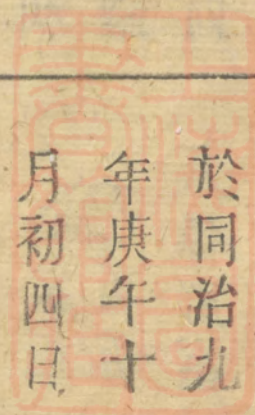 於同治九
年庚午十
月初四日